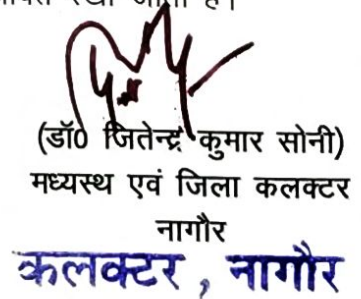 रखा जाता है।
(डॉ0 जितेन्द्र कुमार सोनी)
मध्यस्थ एवं जिला कलक्टर
नागौर
कलक्टर , नागौर